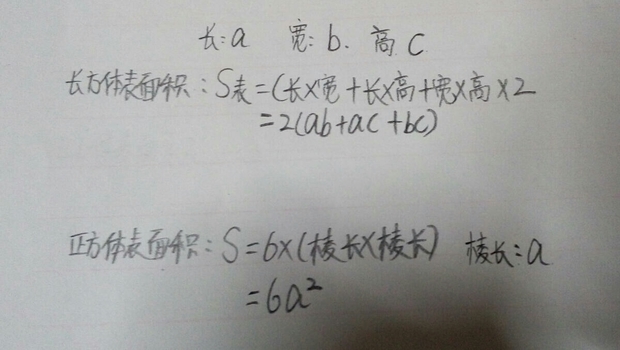 长:a 宽:b. 高c
长方体表面积:S表=(长×宽+长×高+宽×高×2
=2(ab+ac+bc)
正方体表面积:S=6×(棱长×棱长) 棱长:a
=6a²